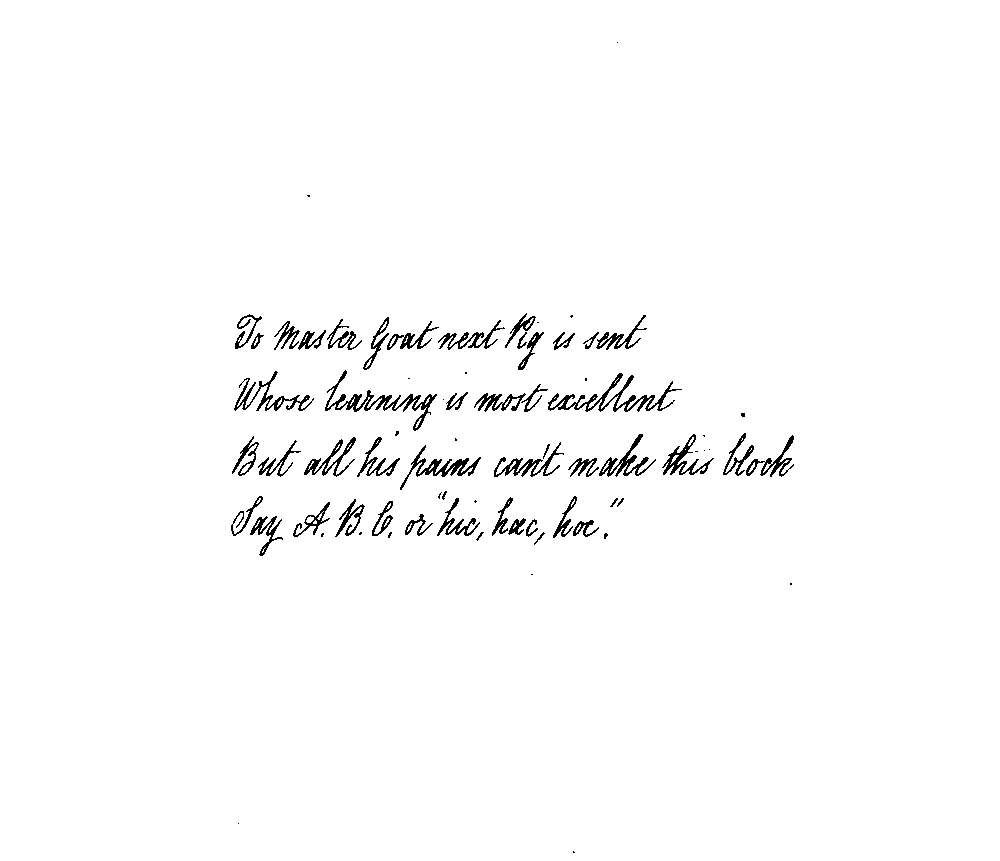 To Master Goat next Pig is sent
Whose learning is most excellent
But all his pains can't make this block
Say A. B. C. or "hic, hæc, hoc."